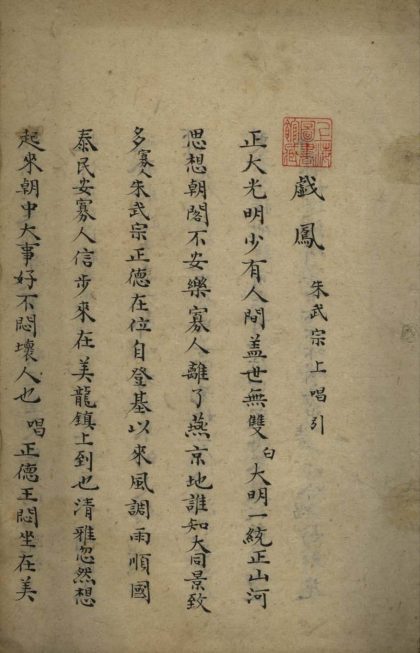 戯鳳 朱武宗上唱引
正大光明少有人間盖世無雙 白 大明一統正山河
思想朝閣不安樂寡人離了燕京地誰知大同景致
多寡人朱武宗正德在位自登基以來風調雨順國
泰民安寡人信步來在美龍鎮上到也清雅忽然想
起來朝中大事好不悶壞人也 唱 正德王悶坐在美
上海圖書館藏